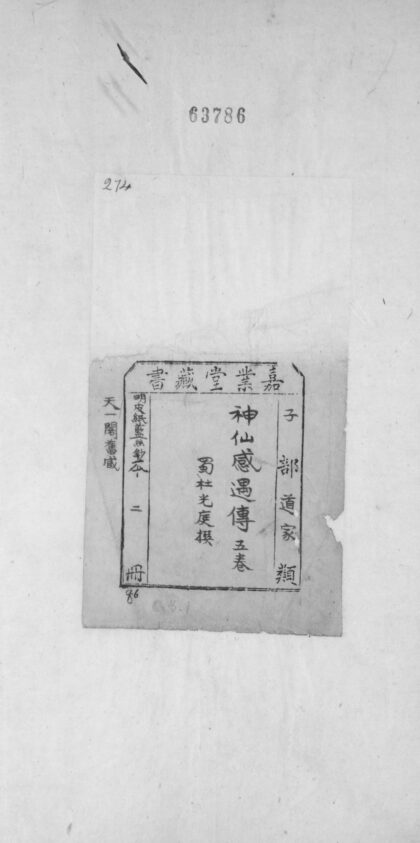 63786
274
嘉業堂藏書
子部道家類
神仙感遇傳五卷
蜀杜光庭撰
明皮紙藍絲鈔本
二冊
天一閣舊藏
86